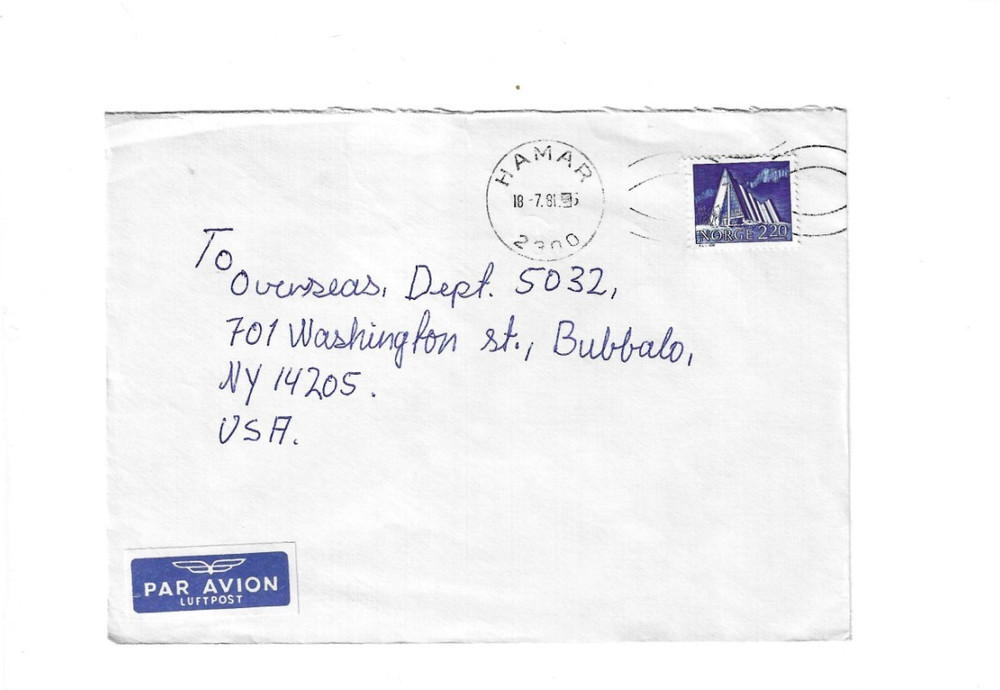 HAMAR
18 -7.81
2300
NORGE 2.20
To
Overseas, Dept. 5032,
701 Washington st., Bubbalo,
NY 14205.
USA.
PAR AVION
LUFTPOST